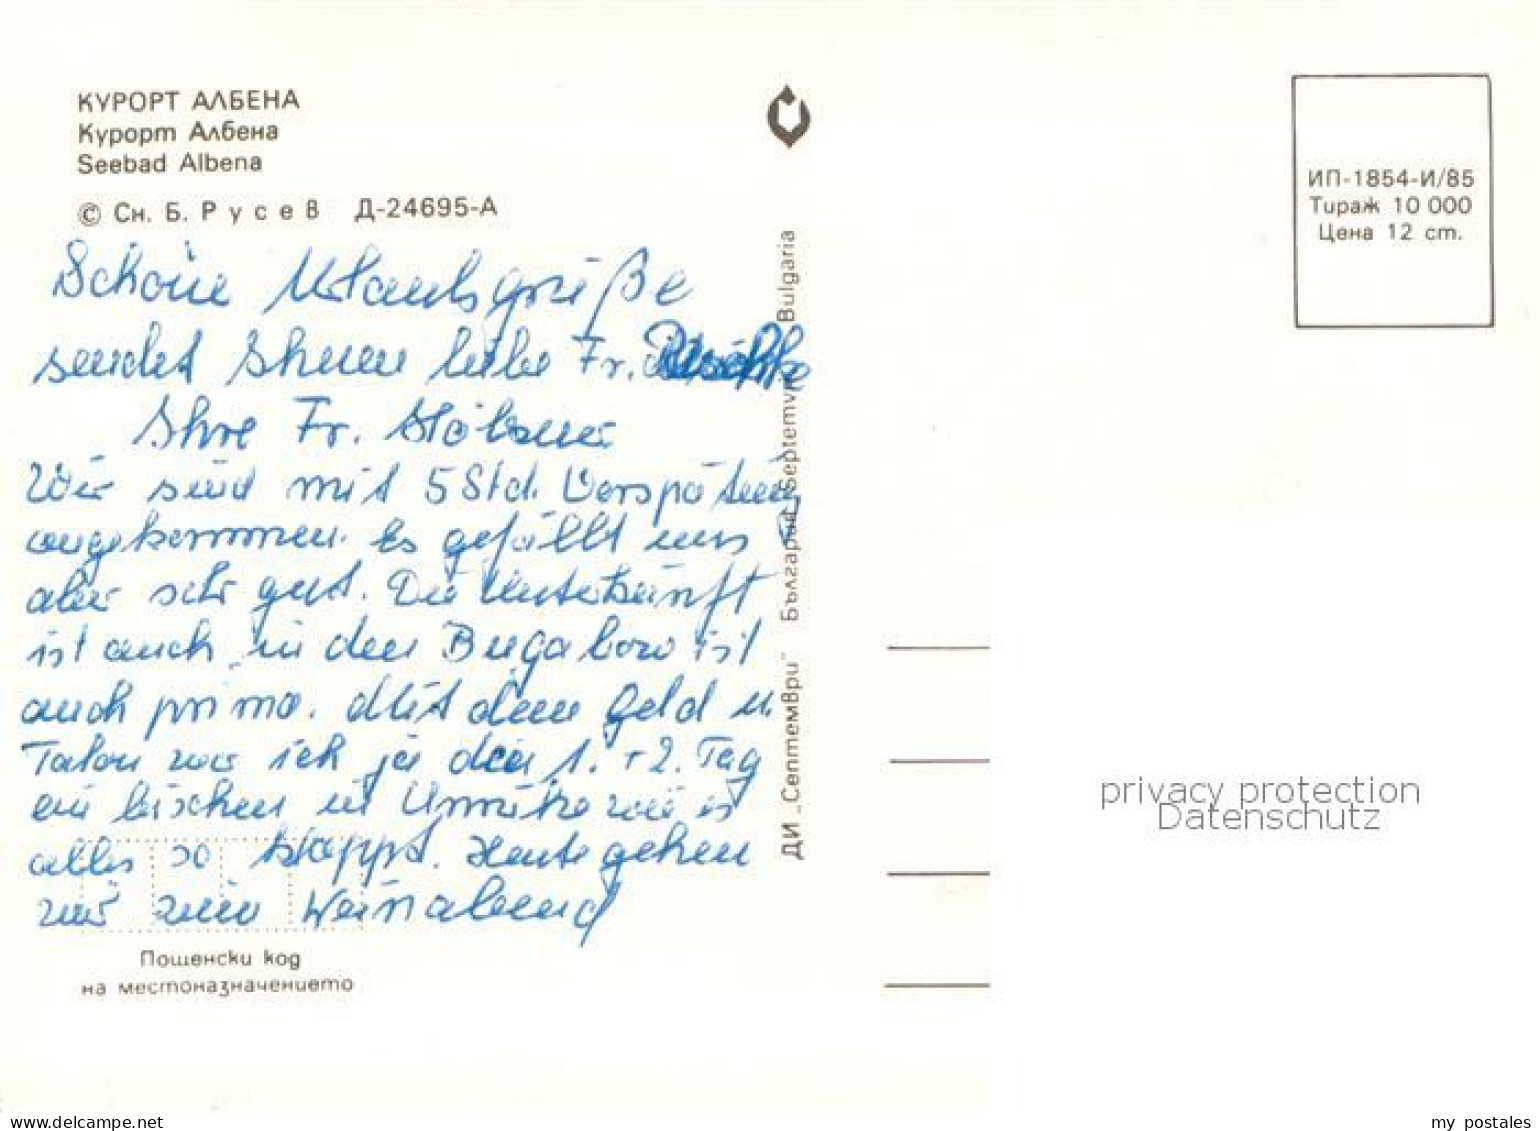 КУРОРТ АЛБЕНА
Курорт Албена
Seebad Albena
© Сн. Б. Русев Д-24695-А
Schöne Urlaubsgrüße
sendet Ihnen liebe Fr.
Ihre Fr.
Wir sind mit 5 Std. Verspätung
angekommen. Es gefällt uns
aber sehr gut. Die Unterkunft
ist auch in den Bugalow ist
auch prima. Mit dem Geld u.
Talon war ich ja den 1. + 2. Tag
ein bischen in Unruhe wie es
alles so klappt. Heute gehen
wir zum Weinabend
Пощенски код
на местоназначението
ДИ „Септември" България Septemvri Bulgaria
ИП-1854-И/85
Тираж 10 000
Цена 12 ст.
privacy protection
Datenschutz
www.delcampe.net
my_postales